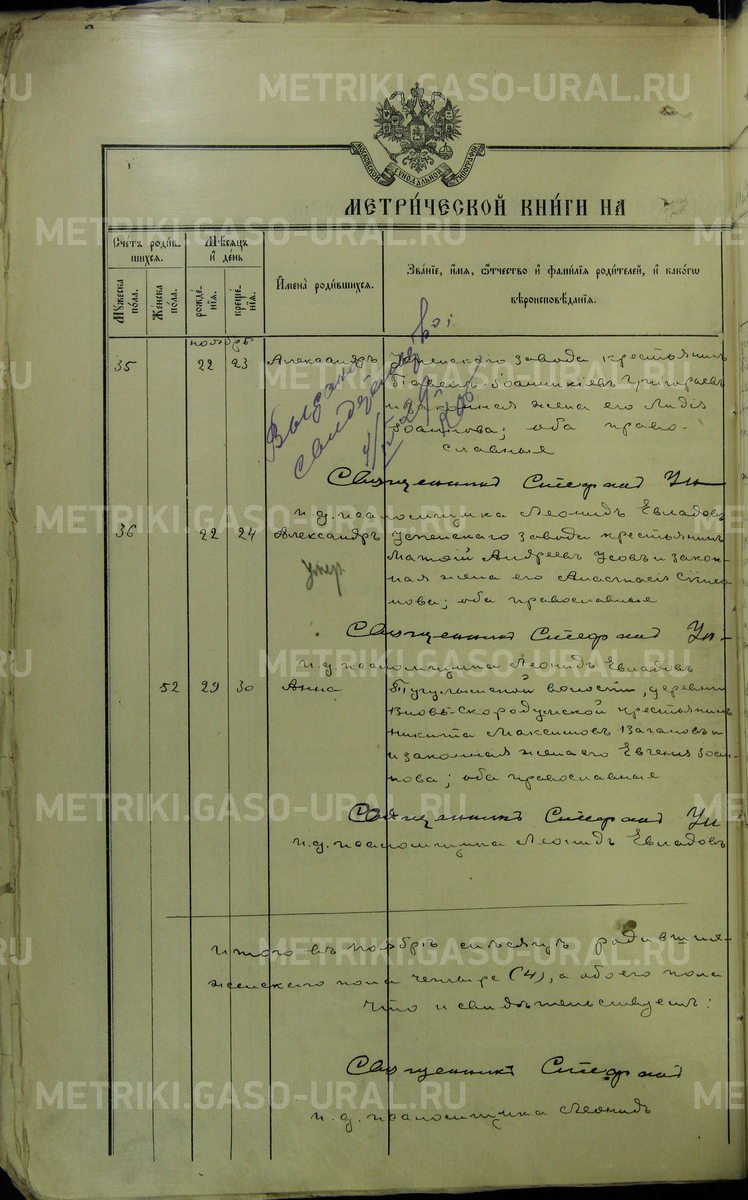 METRIKI.GASO-URAL.RU
МОСКОВСКОЙ СѴНОДАЛЬНОЙ ТИПОГРАФІИ
МЕТРИ́ЧЕСКОЙ КНИ́ГИ НА
Сче́тъ роди́в-
шихся.
Мѣ́сяцъ
и҆ де́нь
И҆мена̀ роди́вшихся.
Зва́нїе, и҆́мя, ѻ҆́тчество и҆ фами́лїя роди́телей, и҆ како́гѡ
вѣроисповѣ́данїя.
Мꙋ́жеска по́ла.
Же́нска по́ла.
рожде́нїя.
креще́нїя.
ноябрь
35 22 23 Александръ Успенскаго завода крестьянинъ
Павелъ Іоанникіевъ Григорьевъ
и законная жена его Лидія
Іоаннова; оба право-
славные
Выдано
свидѣтельство
Священникъ Стефанъ
и. д. псаломщика Леонидъ Евладовъ
36 22 24 Александръ Успенскаго завода крестьянинъ
умер
Матѳій Андреевъ Усовъ и закон-
ная жена его Анастасія
нова; оба православные
Священникъ Стефанъ
и. д. псаломщика Леонидъ Евладовъ
52 29 30 Анна Тугулымской волости, деревни
Вновь-Скородумской крестьянинъ
Никита Максимовъ Вагановъ и
и законная жена его Евгенія Іоан-
нова; оба православные
Священникъ Стефанъ
и. д. псаломщика Леонидъ Евладовъ
Итого въ ноябрѣ мѣсяцѣ родившихся
женскаго пола четыре (4), а обоего пола
Что и свидѣтельствуемъ:
Священникъ Стефанъ
и. д. псаломщика Леонидъ